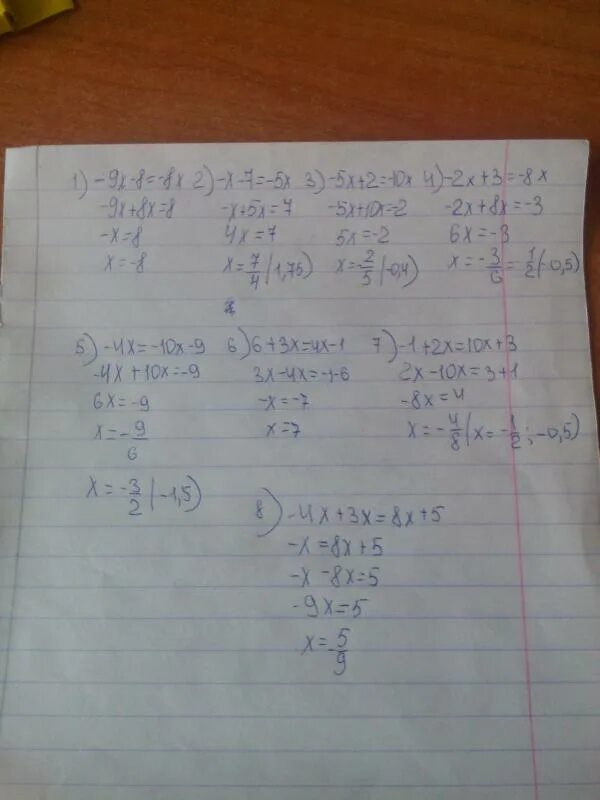 1) -9x-8=-8x 2) -x-7=-5x 3) -5x+2=-10x 4) -2x+3=-8x
-9x+8x=8 -x+5x=7 -5x+10x=-2 -2x+8x=-3
-x=8 4x=7 5x=-2 6x=-3
x=-8 x=7/4 (1,75) x=-2/5 (-0,4) x=-3/6=1/2 (-0,5)
5) -4x=-10x-9 6) 6+3x=4x-1 7) -1+2x=10x+3
-4x+10x=-9 3x-4x=-1-6 2x-10x=3+1
6x=-9 -x=-7 -8x=4
x=-9/6 x=7 x=-4/8 (x=-1/2; -0,5)
x=-3/2 (-1,5)
8) -4x+3x=8x+5
-x=8x+5
-x-8x=5
-9x=5
x=-5/9